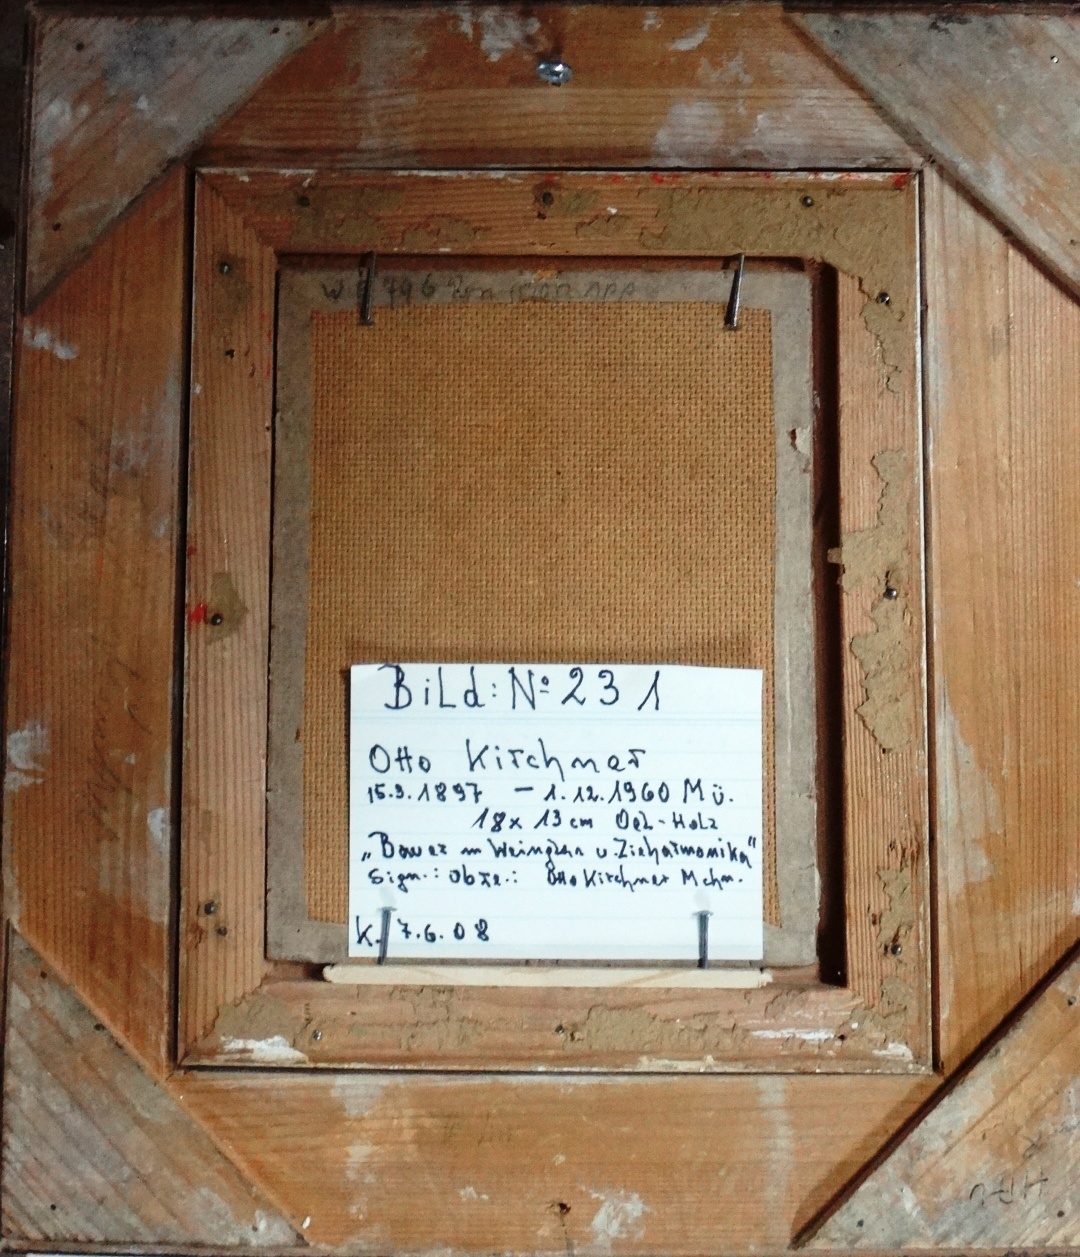 W
Bild: No 231
Otto Kirchner
15.3.1897 – 1.12.1960 Mü.
18 x 13 cm Oel-Holz
„Bauer m Weinglas u. Zieharmonika"
Sign.: Obre.: Otto Kirchner Mchn.
K. 7.6.08